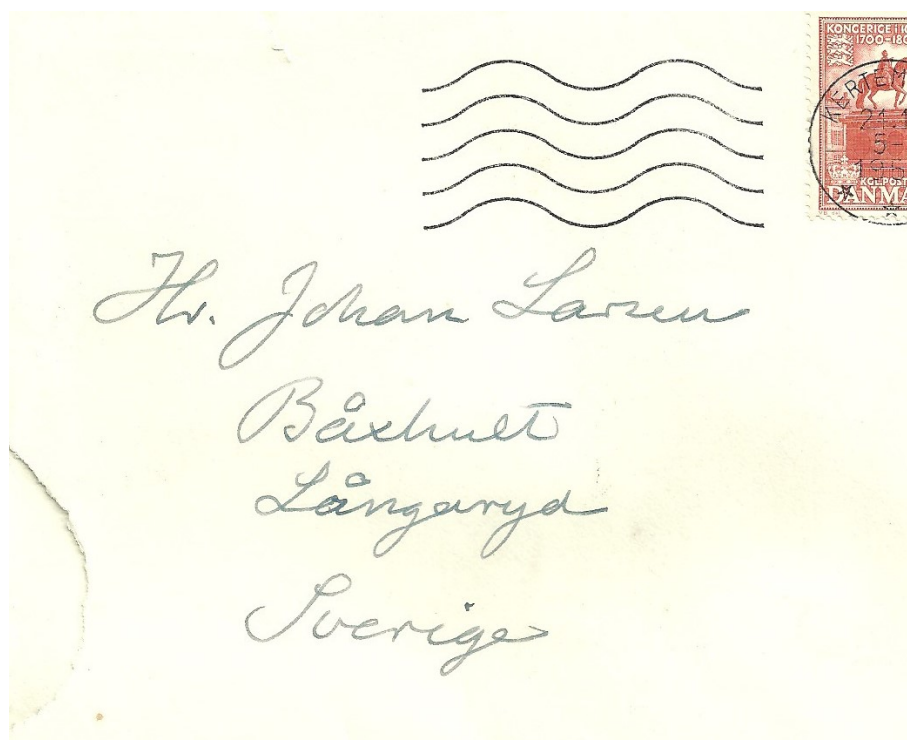 KONGERIGE I
1700-18
KERTEM
21.
15-
195
KGL.POST
DANMA
Hr. Johan Larsen
Båxhult
Långaryd
Sverige